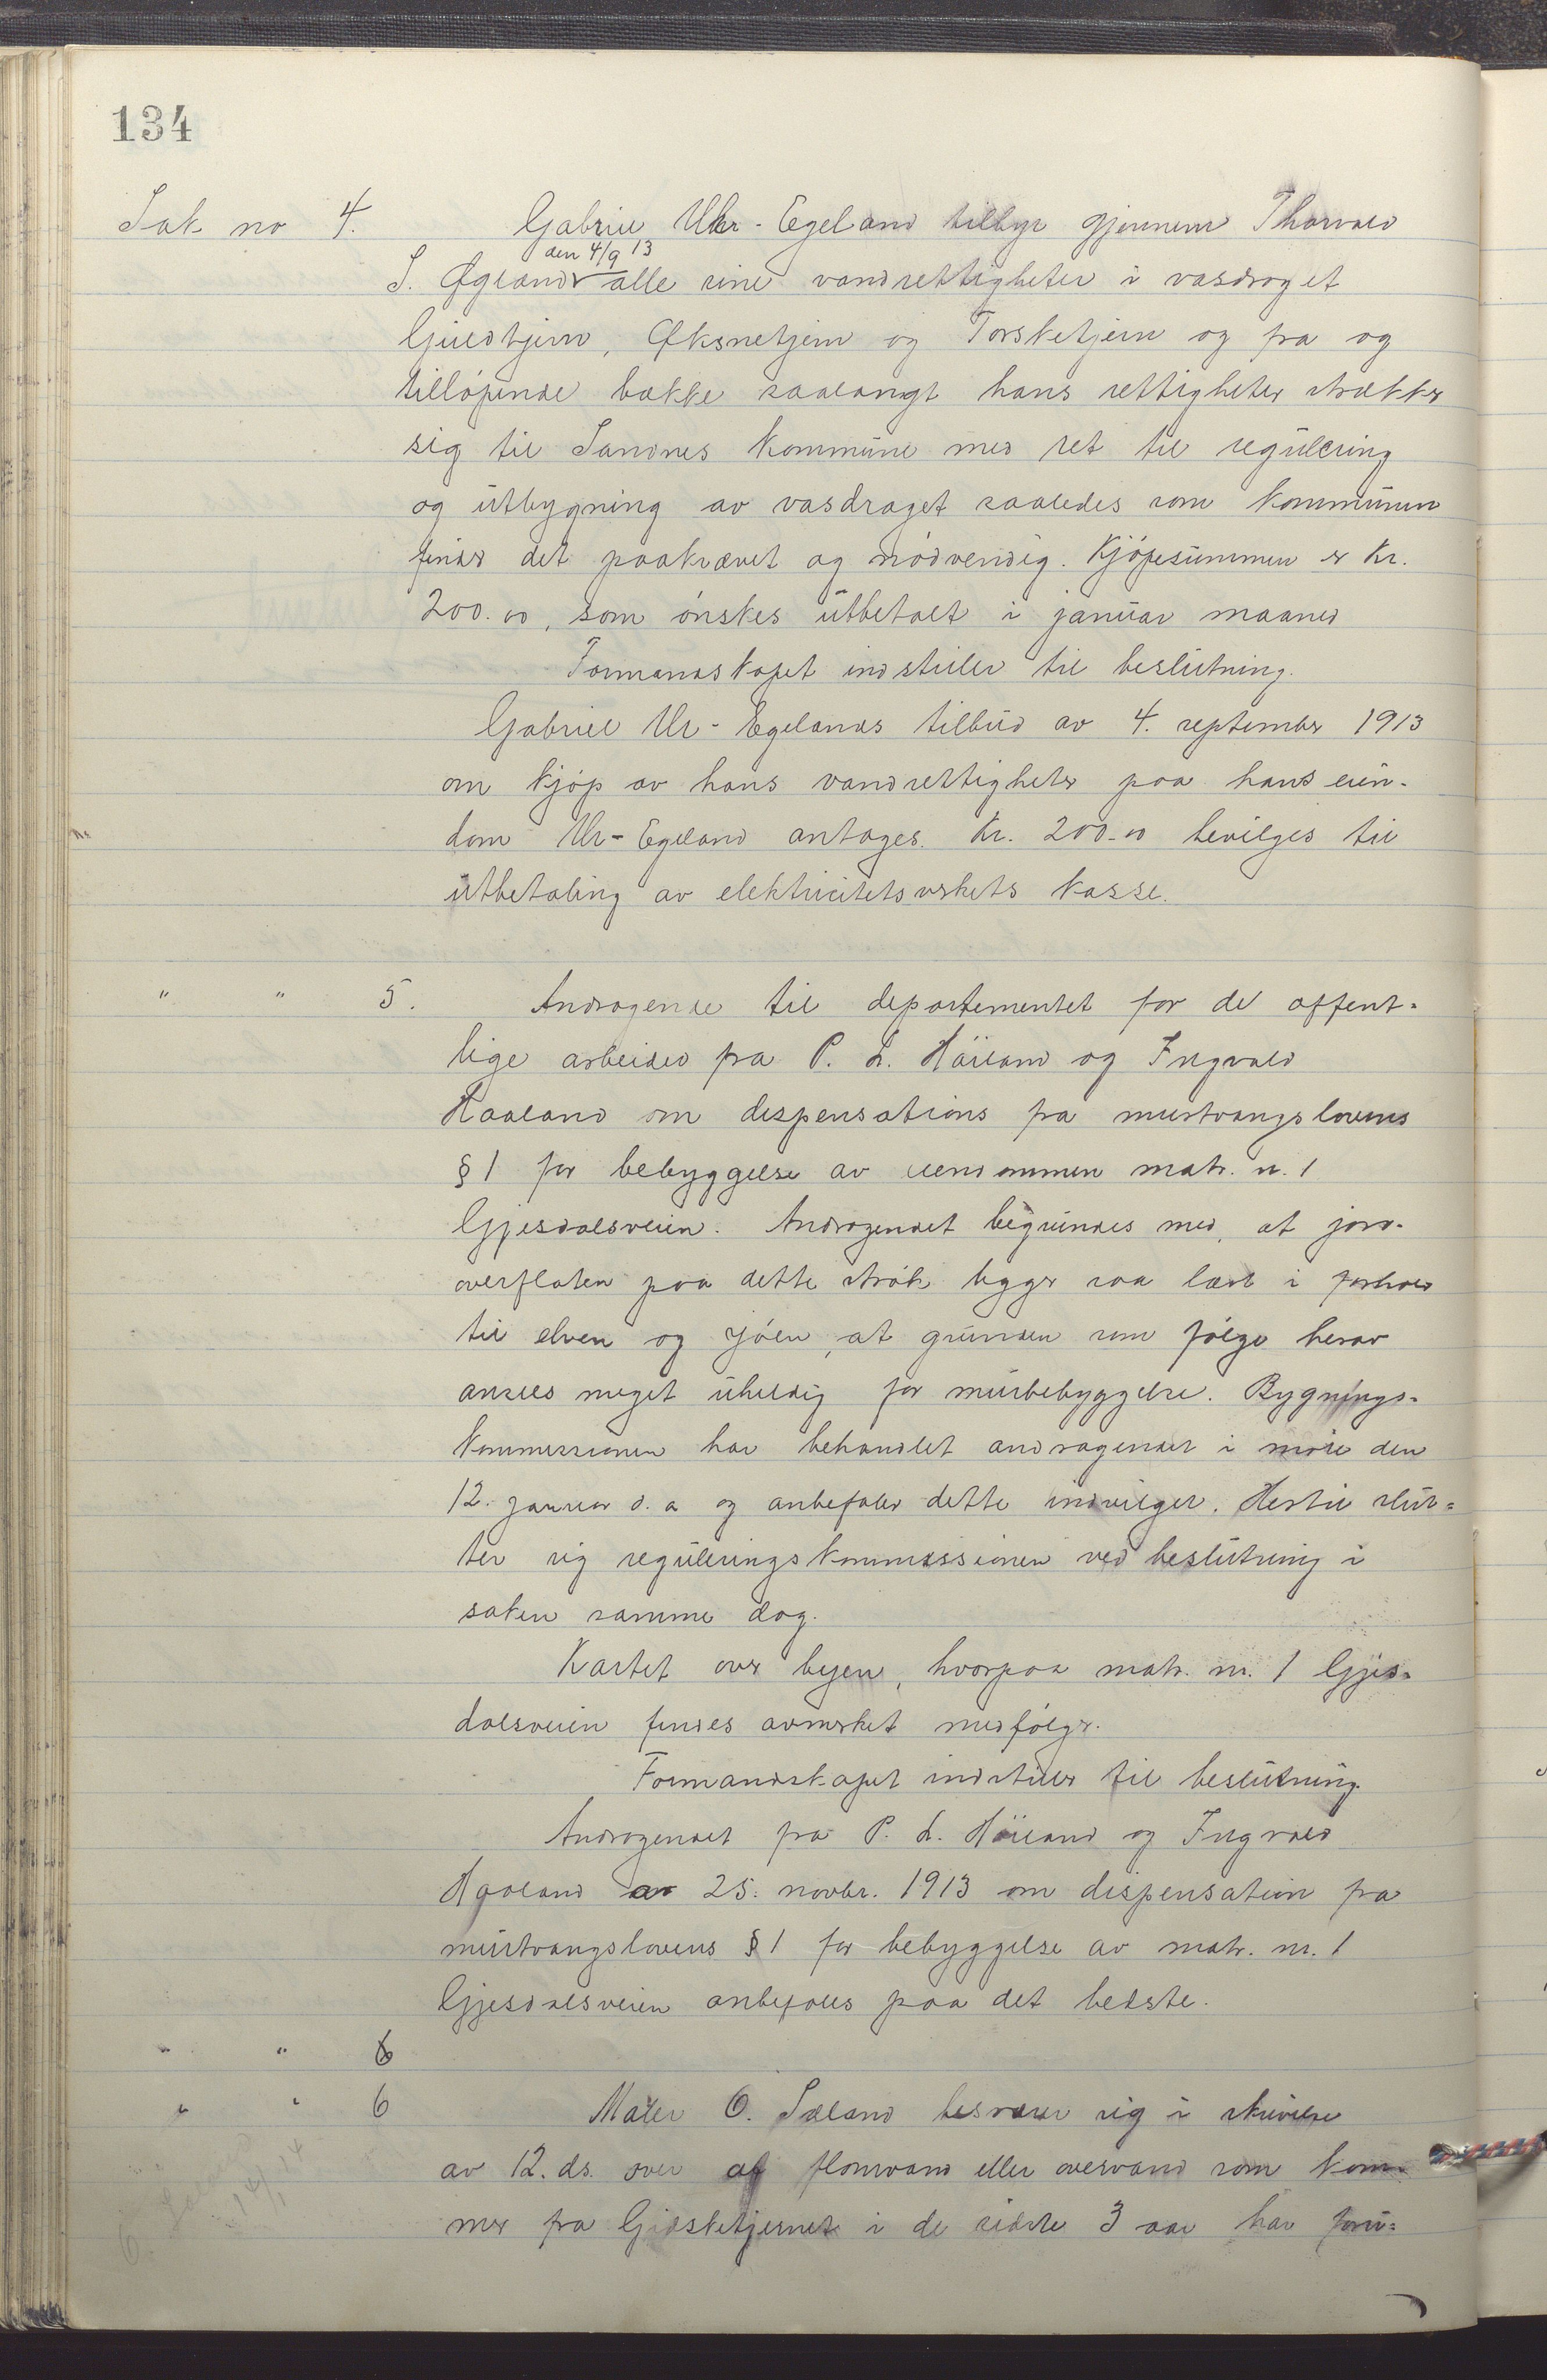 134
Sak no 4. Gabriel Ur-Egeland tilbyr gjennem Thorvald
den 4/9 13
S. Øgland alle sine vandrettigheter i vasdraget
Gjuedtjern, Øksnetjern og Torsketjern og fra og
tilløpende bække saalangt hans rettigheter strækker
sig til Sandnes kommune med ret til regulering
og utbygning av vasdraget saaledes som kommunen
finder det paakrævet og nødvendig. Kjøpesummen er Kr.
200.00, som ønskes utbetalt i januar maaned
Formandskapet indstiller til beslutning.
Gabriel Ur-Egelands tilbud av 4. september 1913
om kjøp av hans vandrettigheter paa hans eien-
dom Ur-Egeland antages. Kr. 200.00 bevilges til
utbetaling av elektricitetsverkets kasse.
" " 5. Andragende til departementet for de offent-
lige arbeider fra P. L. Høiland og Ingvald
Haaland om dispensations fra murtvangslovens
§ 1 for bebyggelse av eiendommen matr. n. 1
Gjesdalsveien. Andragendet begrundes med, at jord-
overflaten paa dette strøk ligger saa lavt i forhold
til elven og sjøen, at grunden som følge herav
ansees meget uheldig for murbebyggelse. Bygnings-
kommissionen har behandlet andragendet i møte den
12. januar d. a og anbefaler dette indvilget. Hertil slut-
ter sig reguleringskommissionen ved beslutning i
saken samme dag.
Kartet over byen, hvorpaa matr. nr. 1 Gjes-
dalsveien findes avmerket medfølger.
Formandskapet indstiller til beslutning.
Andragendet fra P. L. Høiland og Ingvald
Haaland av 25. novbr. 1913 om dispensation fra
murtvangslovens § 1 for bebyggelse av matr. nr. 1
Gjesdalsveien anbefales paa det bedste.
" " 6
" " 6 Maler O. Sæland besværer sig i skrivelse
av 12. ds. over at flomvand eller overvand som kom-
mer fra Gjidsketjernet i de sidste 3 aar har foru-